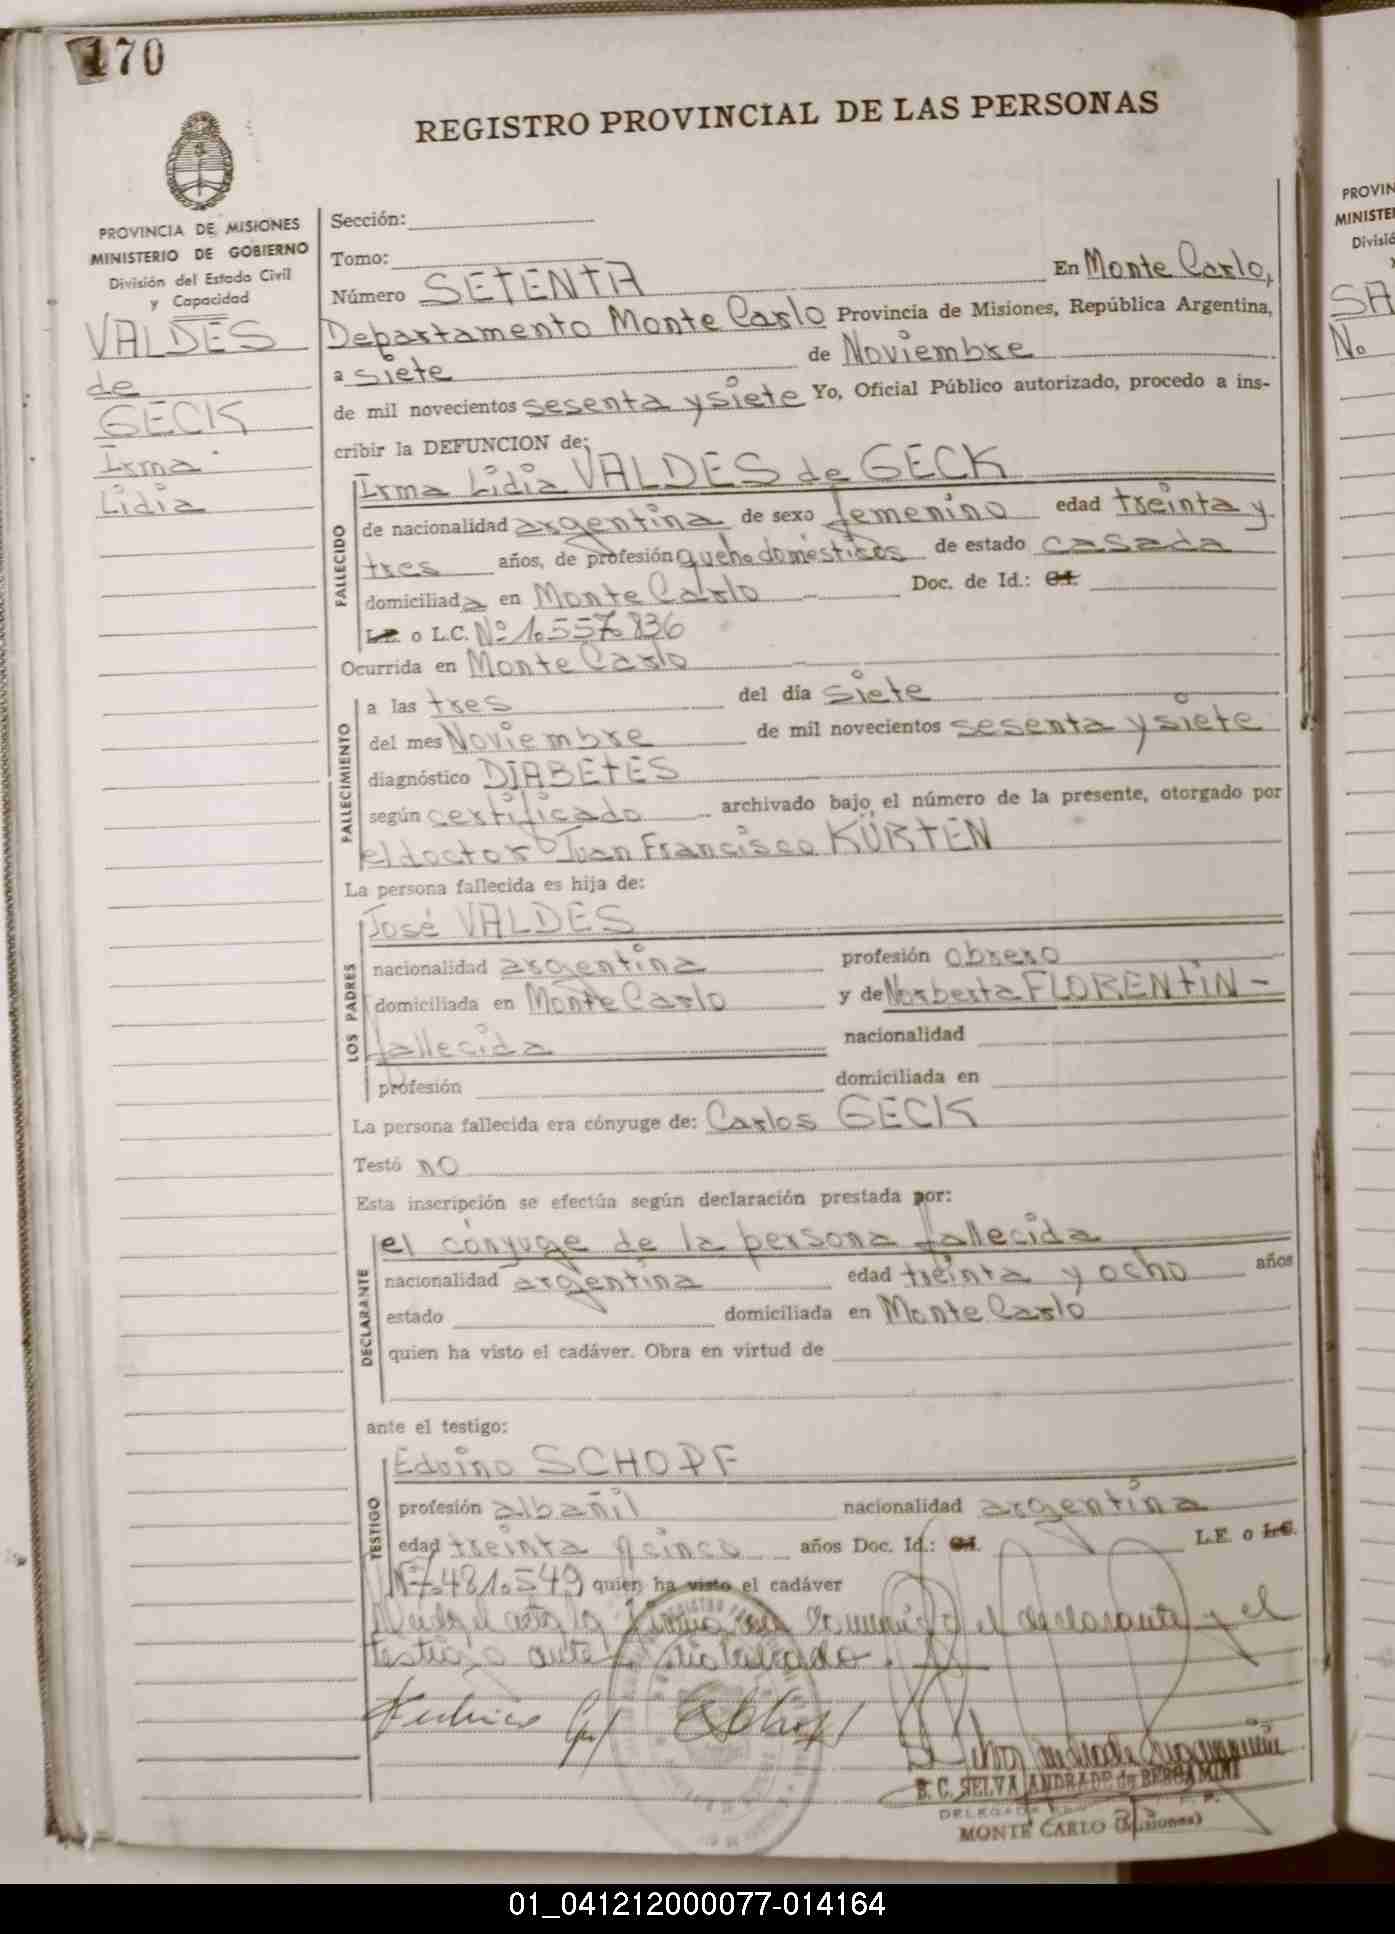 170
REGISTRO PROVINCIAL DE LAS PERSONAS
PROVINCIA DE MISIONES
MINISTERIO DE GOBIERNO
División del Estado Civil
y Capacidad
VALDES
de
GECK
Irma
Lidia
Sección:
Tomo:
Número SETENTA En Monte Carlo,
Departamento Monte Carlo Provincia de Misiones, República Argentina,
a siete de Noviembre
de mil novecientos sesenta y siete Yo, Oficial Público autorizado, procedo a ins-
cribir la DEFUNCION de:
FALLECIDO
Irma Lidia VALDES de GECK
de nacionalidad argentina de sexo femenino edad treinta y
tres años, de profesión quehe domésticos de estado casada
domiciliada en Monte Carlo Doc. de Id.: C.I.
L.E. o L.C. Nº 1.557.836
Ocurrida en Monte Carlo
FALLECIMIENTO
a las tres del día siete
del mes Noviembre de mil novecientos sesenta y siete
diagnóstico DIABETES
según certificado archivado bajo el número de la presente, otorgado por
el doctor Juan Francisco KÜRTEN
La persona fallecida es hija de:
LOS PADRES
José VALDES
nacionalidad argentina profesión obrero
domiciliada en Monte Carlo y de Norberta FLORENTIN -
fallecida nacionalidad
profesión domiciliada en
La persona fallecida era cónyuge de: Carlos GECK
Testó no
Esta inscripción se efectúa según declaración prestada por:
DECLARANTE
el cónyuge de la persona fallecida
nacionalidad argentina edad treinta y ocho años
estado domiciliada en Monte Carlo
quien ha visto el cadáver. Obra en virtud de
ante el testigo:
TESTIGO
Edvino SCHOPF
profesión albañil nacionalidad argentina
edad treinta y cinco años Doc. Id.: C.I. L.E. o L.C.
Nº 7.481.549 quien ha visto el cadáver
el declarante y el
testigo
B. C. SELVA ANDRADE de BERGAMINI
MONTE CARLO (Misiones)
PROVIN
MINISTE
Divisió
SA
No
01_041212000077-014164